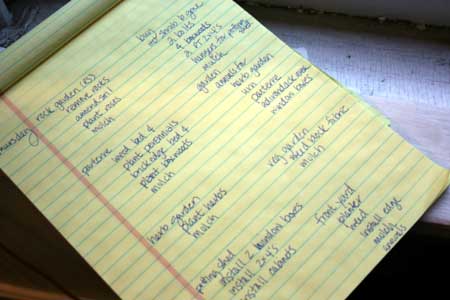 Thursday
rock garden (RS)
remove rocks
amend soil
plant roses
mulch
parterre
weed bed 4
plant perennials
brick edge bed 4
plant boxwoods
mulch
herb garden
plant herbs
mulch
potting shed
install 2 window boxes
install 2x4's
install
buy
2 bolts
4 boxwoods
2 PT 2x4's
hangers for potting shed
mulch
garden
herb garden
urn
parterre
adirondack
window boxes
veg garden
weed back
mulch
front yard
planter
weed
install edge
mulch
annuals